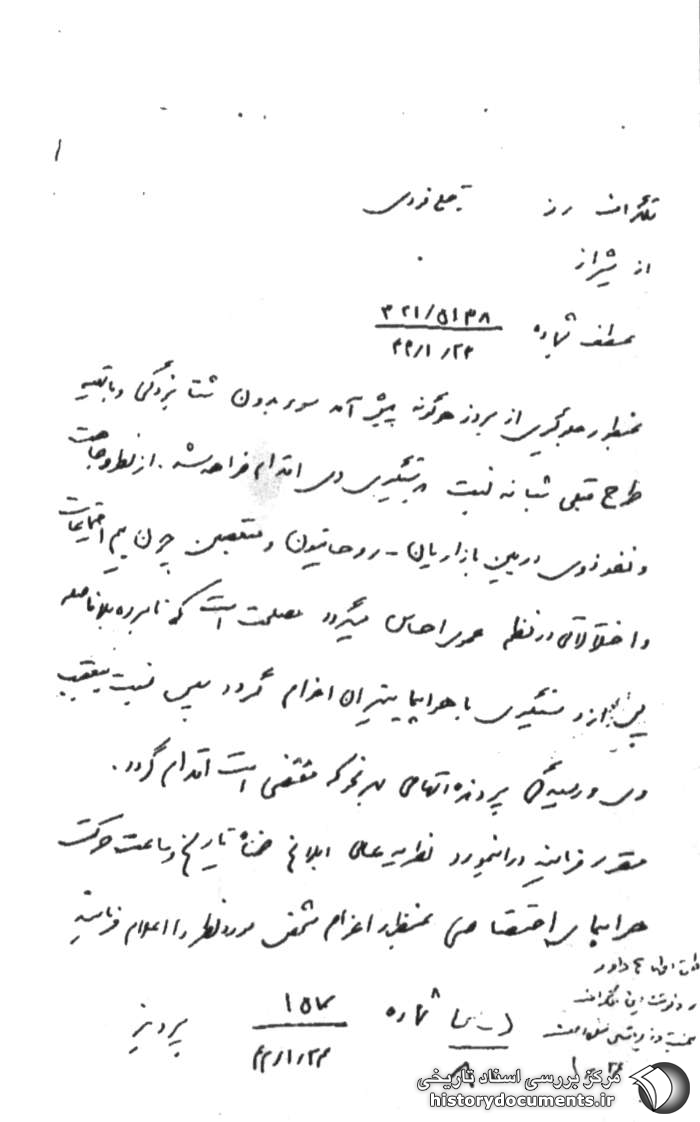 تلگراف رمز به
از شیراز
عطف شماره ۳۲۱/۵۱۳۸
۴۲/۱/۲۳
بمنظور جلوگیری از بروز هرگونه پیش آمد سوء بدون شتابزدگی و با تهیه
طرح قبلی شبانه نسبت بدستگیری وی اقدام خواهد شد. از نظر وجاهت
و نفوذ وی در بین بازاریان - روحانیون و متعصبین چون بیم اجتماعات
و اختلالاتی در نظم عمومی احساس میگردد مصلحت است که نامبرده بلافاصله
پس از دستگیری با هواپیما بتهران اعزام گردد سپس نسبت بتعقیب
وی و رسیدگی پرونده اتهامی بهر نحو که مقتضی است اقدام گردد.
مقرر فرمایند در اینمورد نظریه عالی ابلاغ ضمناً تاریخ و ساعت حرکت
هواپیمای اختصاصی بمنظور اعزام شخص مورد نظر را اعلام فرمایند
شماره ۱۵۷
۴۲/۱/۲۳
پرویز
مرکز بررسی اسناد تاریخی
historydocuments.ir